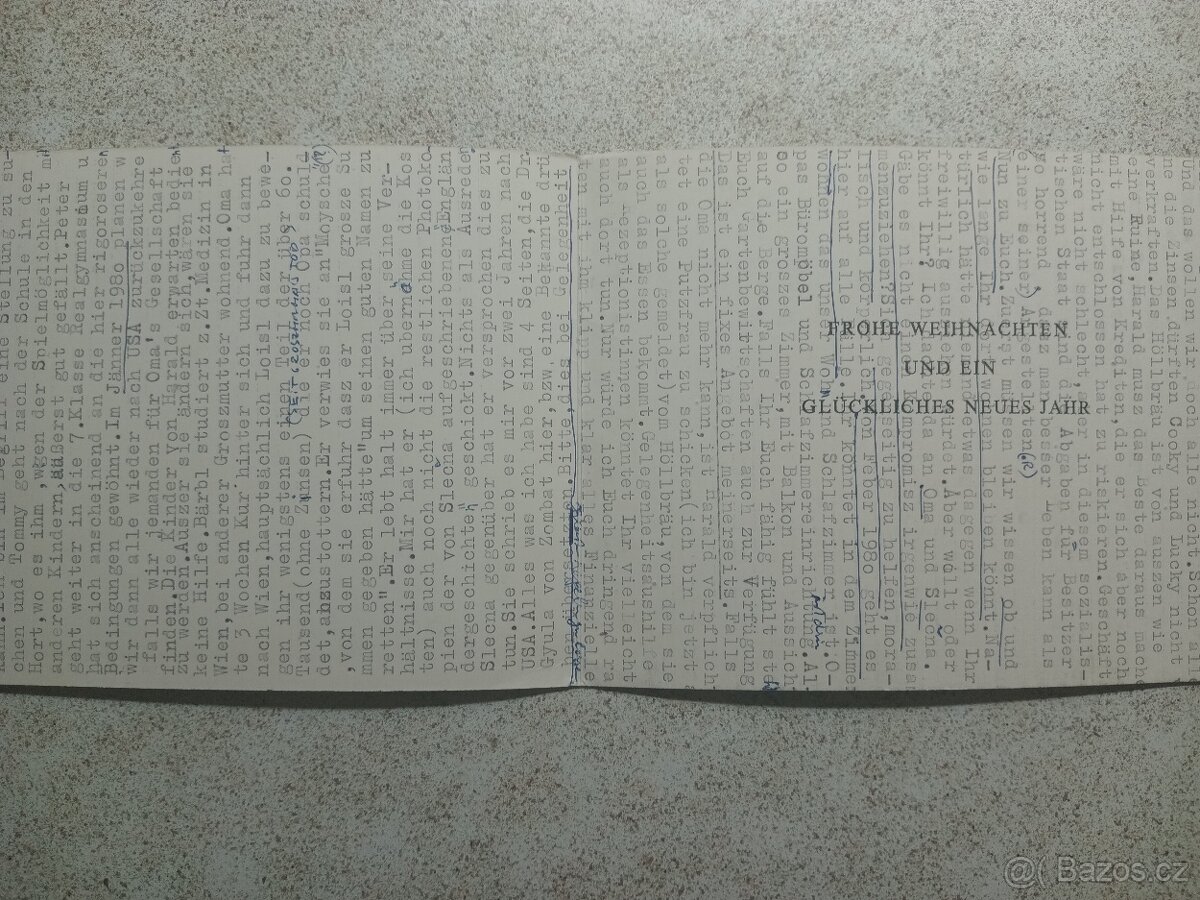 im Begriff eine Stellung zu su-
chen und Tommy geht nach der Schule in den
Hort,wo es ihm ,wegen der Spielmöglichkeit mi
anderen Kindern,äußerst gut gefällt.Peter
geht weiter in die 7.Klasse Realgymnasium u
hat sich anscheinend an die hier rigoroseren
Bedingungen gewöhnt.Im Jänner 1980 planen w
wir dann alle wieder nach USA zurückzukehre
falls wir jemanden für Oma's Gesellschaft
finden.Die Kinder von Harald erwarten bedien
zu werden.Auszer sie ändern sich,wären sie
keine Hilfe.Bärbl studiert z.Zt.Medizin in
Wien,bei anderer Groszmutter wohnend.Oma hat
te 3 Wochen Kur hinter sich und fuhr dann
nach Wien,hauptsächlich Loisl dazu zu bewe-
gen ihr wenigstens einen Teil der über 60.
Tausend(ohne Zinsen) die er noch Oma schuld
det,abzustottern.Er verwies sie an"Moysche"
,von dem sie erfuhr dass er Loisl grosze Su
mmen gegeben hätte"um seinen guten Namen zu
retten".Er lebt halt immer über seine Ver-
hältnisse.Mir hat er (ich übernahme die Kos
ten) auch noch nicht die restlichen Photoko-
pien der von Slecna aufgeschriebenen Englän
dergeschichte" geschickt.Nichts als Ausreden
Slecna gegenüber hat er versprochen dies zu
tun.Sie schrieb es mir vor zwei Jahren nach
USA.Alles was ich habe sind 4 Seiten,die Dr
Gyula von Zombat hier,bzw eine Bekannte drü
ben besasse.Bitte,dies bei Gelegenheit
nen mit ihm klipp und klar alles Finanzielle
auch dort tun.Nur würde ich Euch dringend ra
als Rezeptionistin könntet Ihr vieleicht
auch das Essen bekommt.Gelegenheitsaushilfe
als solche gemeldet)vom Höllbräu,von dem sie
tet eine Putzfrau zu schicken(ich bin jetzt
die Oma nicht mehr kann,ist Harald verpflich
Das ist ein fixes Anbot meinerseits.Falls
Euch Gartenbewirtschaften auch zur Verfügung
auf die Berge.Falls Ihr Euch fähig fühlt ste
so ein grosses Zimmer,mit Balkon und Aussich
pas Büromöbel und Schlafzimmereinrichtung.Al-
worden dass unser Wohn und Schlafzimmer ist.O-
hier auf alle Fälle.Ihr könntet in dem Zimmer
lisch und körperlich.Ab Feber 1980 geht es
menzuziehen?Sich gegenseitig zu helfen,mora-
Gäbe es nicht einen Kompromisz irgenwie zusam
könnt Ihr? Ich dachte da an Oma und Slecna.
freiwillig aushalten würdet.Aber wollt oder
türlich hätte niemand etwas dagegen wenn Ihr
wie lange Ihr dort wohnen bleiben könnt.Na-
Nun zu Euch.Zuerst müssen wir wissen ob und
einer seiner)Angestellten(R)
so horrend,dasz man besser leben kann als
tischen Staat sind die Abgaben für Besitzer
wäre nicht schlecht,aber in diesem sozilis-
nicht entschlossen hat zu riskieren.Geschäft
mit Hilfe von Krediten,die er sich aber noch
eine Ruine,Harald musz das Beste daraus mach
verkraften.Das Höllbräu ist von auszen wie
FROHE WEIHNACHTEN
UND EIN
GLÜCKLICHES NEUES JAHR
Bazos.cz